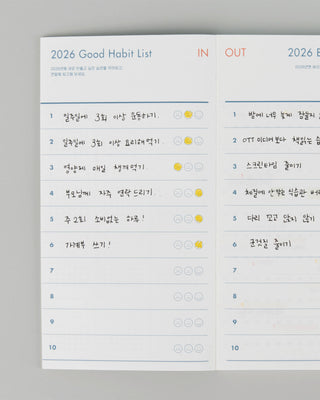 2026 Good Habit List
IN
2026년에 새로 만들고 싶은 습관을 적어보고,
연말에 체크해 보세요.
1 일주일에 3회 이상 운동하기.
2 일주일에 3회 이상 요리해먹기.
3 영양제 매일 챙겨먹기.
4 부모님께 자주 연락드리기.
5 주 2회 소비없는 하루!
6 가계부 쓰기!
7
8
9
10
OUT
2026
1 밤에 너무 늦게
2 OTT 미디어보다 책읽는
3 스크린타임 줄이기
4 체질에 안맞는 식습관
5 다리 꼬고 앉지 않기
6 군것질 줄이기
7
8
9
10